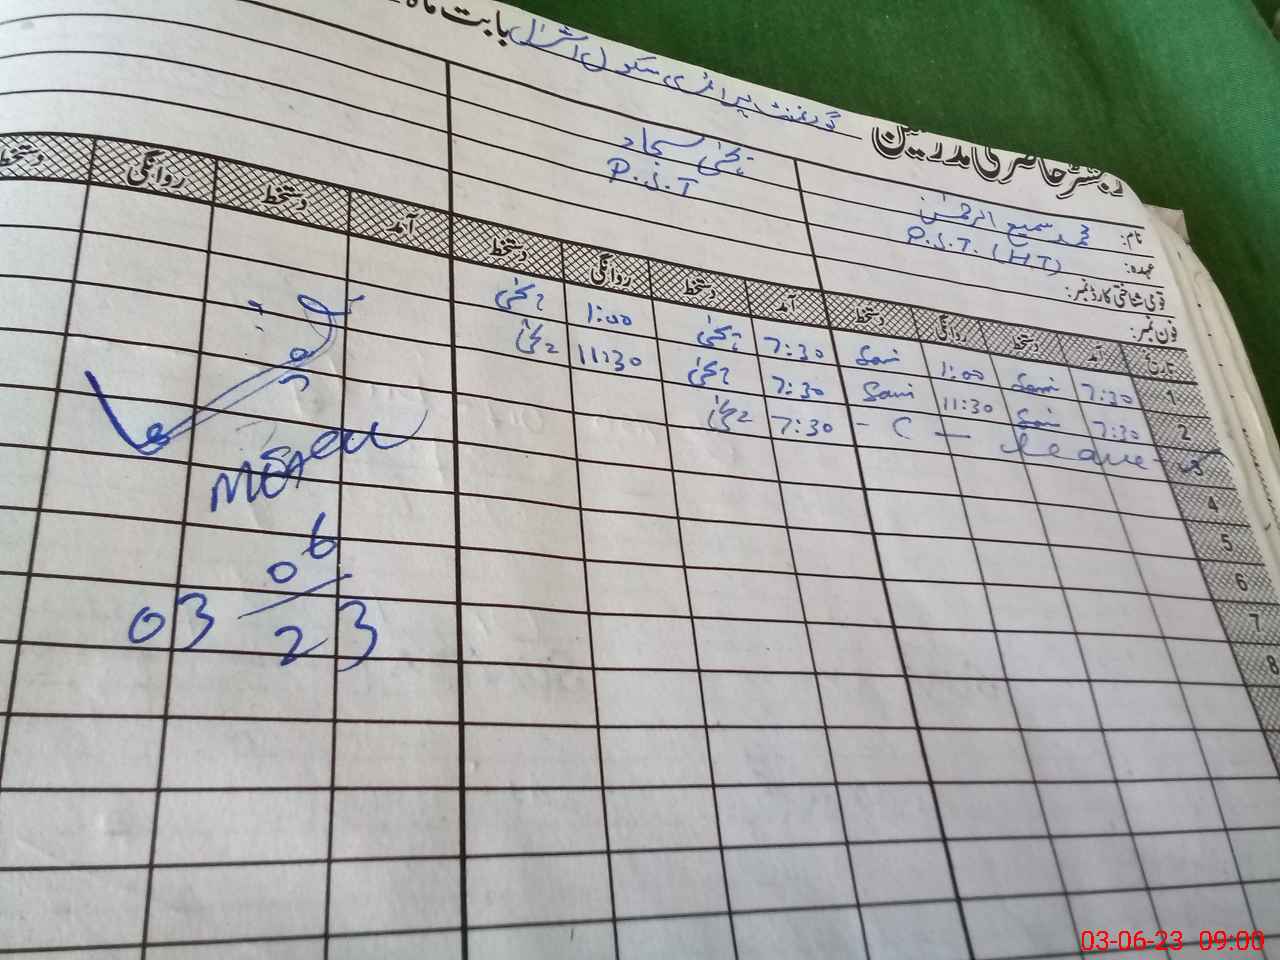 رجسٹر حاضری مدرسین گورنمنٹ پرائمری سکول بابت ماہ
نام: محمد سمیع الرحمٰن یحیٰی سجاد
عہدہ: P.S.T. (HT) P.S.T
قومی شناختی کارڈ نمبر:
فون نمبر:
تاریخ آمد دستخط روانگی دستخط آمد دستخط روانگی دستخط آمد دستخط روانگی دستخط
1 7:30 Sami 1:00 Sami 7:30 یحیٰی 1:00 یحیٰی
2 7:30 Sami 11:30 Sami 7:30 یحیٰی 11:30 یحیٰی
3 - C — leave - 7:30 یحیٰی
4
5
6
7
8
03 06 23
03-06-23 09:00